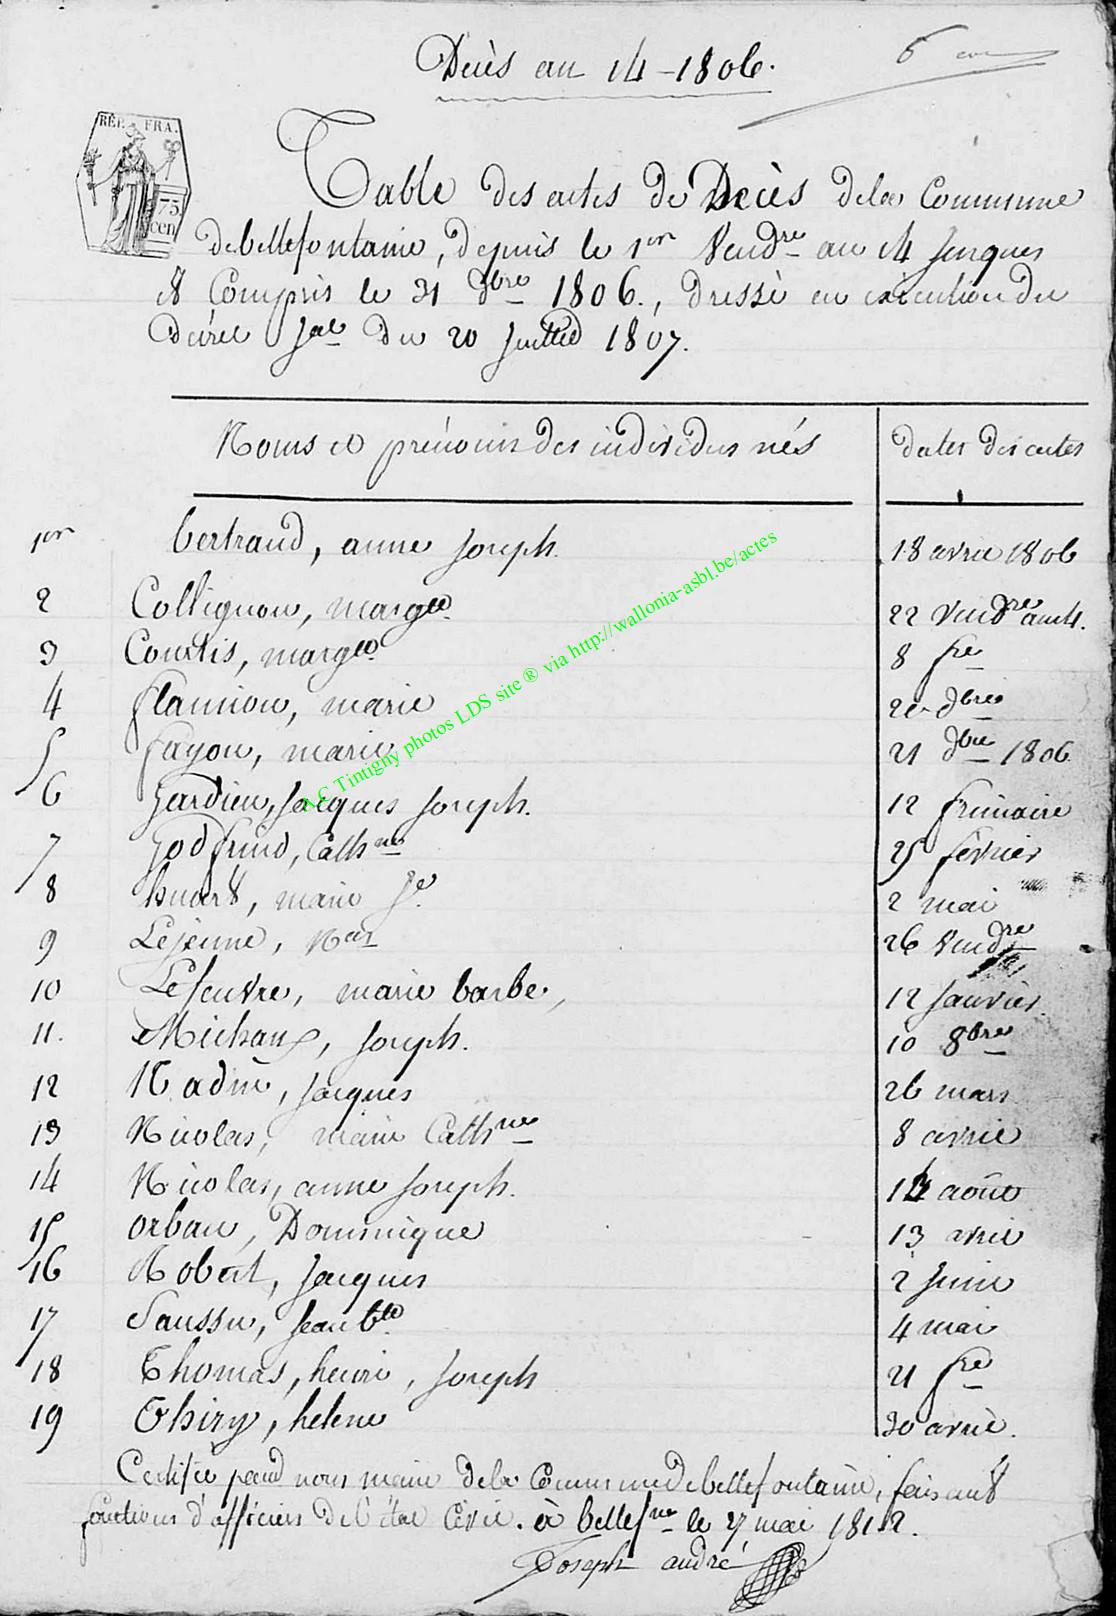 Décès an 14 - 1806.
RÉP. FRA.
75
cen
Table des actes de Décès dela Commune
debellefontaine, depuis le 1er Vendre an 14 jusques
et Compris le 31 Xbre 1806., dressé en exécution du
Décret Jal du 20 Juillet 1807.
Noms et prénoms des individus nés
dates des actes
1er bertrand, anne joseph. 18 avril 1806
2 Collignon, margte. 22 Vendre an 14.
3 Courtis, margte 8 fre
4 flamion, marie dbre
5 fayon, marie 21 dbre 1806
6 Gardien, Jacques joseph. 12 frimaire
7 Godfrind, Cathne 25 février
8 huart, marie Je. 2 mai
9 Lejeune, Nas 26 Vendre
10 Lefeuvre, marie barbe, 12 Janvier.
11. Michaux, joseph. 10 8bre
12 Nadin, jacques 26 mars
13 Nicolas, marie Cathne 8 avril
14 Nicolas, anne joseph. 14 août
15 orban, Dominique 13 avril
16 Robert, jacques 2 Juin
17 Saussu, jean bte 4 mai
18 Thomas, henri, joseph 21 fre
19 Thiry, helene 30 avril.
Certifié par nous maire dela Commune debellefontaine, faisant
fonctions d'officier de l'état Civil. à bellefne le 27 mai 1812.
Joseph andré
A.C Tintigny photos LDS site ® via http://wallonia-asbl.be/actes